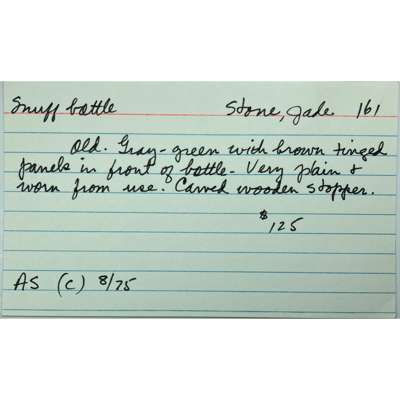 Snuff bottle Stone, Jade 161
Old. Gray-green with brown tinged
panels in front of bottle - Very plain &
worn from use. Carved wooden stopper.
$125
AS (C) 8/75